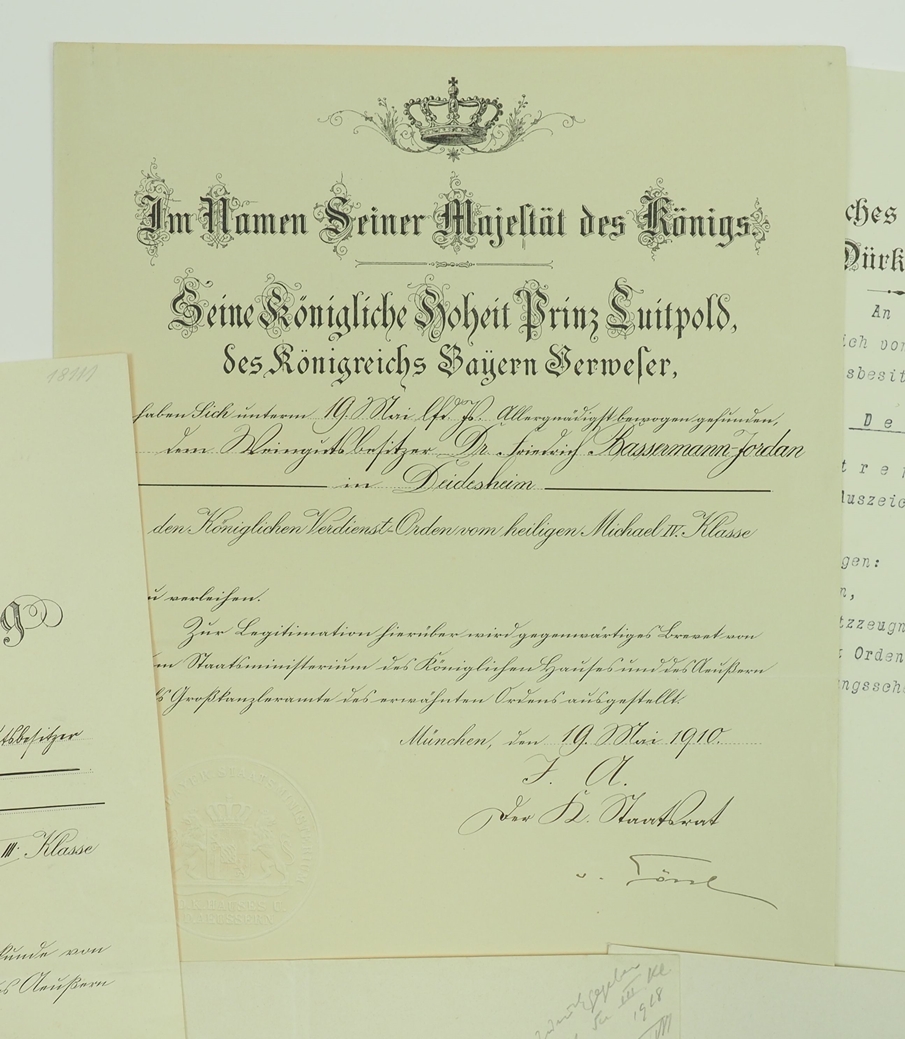 Im Namen Seiner Majestät des Königs.
Seine Königliche Hoheit Prinz Luitpold,
des Königreichs Bayern Verweser,
haben Sich unterm 19. Mai lfd. Js. Allergnädigst bewogen gefunden,
dem Weingutsbesitzer Dr. Friedrich Bassermann-Jordan
in Deidesheim
den Königlichen Verdienst-Orden vom heiligen Michael IV. Klasse
u verleihen.
Zur Legitimation hierüber wird gegenwärtiges Brevet von
m Staatsministerium des Königlichen Hauses und des Aeußern
ls Großkanzleramte des erwähnten Ordens ausgestellt.
München, den 19. Mai 1910.
I. A.
Der K. Staatsrat
v.
g
tsbesitzer
III. Klasse
kunde von
s Aeußern
ches
Dürk
An
ich vor
sbesit
De
trep
Auszeic
gen:
n,
tzzeugn
Orden
ngssch
III Kl.
1918